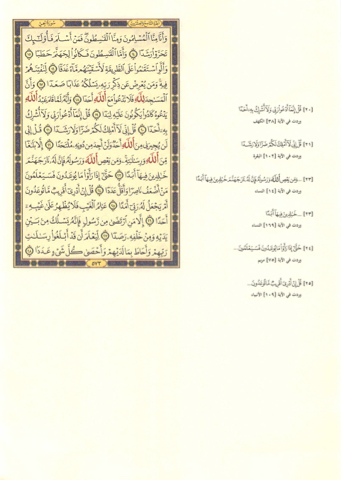 سُورَةُ الجِنِّ
وَأَنَّا مِنَّا ٱلْمُسْلِمُونَ وَمِنَّا ٱلْقَٰسِطُونَ فَمَنْ أَسْلَمَ فَأُو۟لَٰٓئِكَ
تَحَرَّوْا۟ رَشَدًا ١٤ وَأَمَّا ٱلْقَٰسِطُونَ فَكَانُوا۟ لِجَهَنَّمَ حَطَبًا ١٥
وَأَلَّوِ ٱسْتَقَٰمُوا۟ عَلَى ٱلطَّرِيقَةِ لَأَسْقَيْنَٰهُم مَّآءً غَدَقًا ١٦ لِّنَفْتِنَهُمْ
فِيهِ وَمَن يُعْرِضْ عَن ذِكْرِ رَبِّهِۦ يَسْلُكْهُ عَذَابًا صَعَدًا ١٧ وَأَنَّ
ٱلْمَسَٰجِدَ لِلَّهِ فَلَا تَدْعُوا۟ مَعَ ٱللَّهِ أَحَدًا ١٨ وَأَنَّهُۥ لَمَّا قَامَ عَبْدُ ٱللَّهِ
يَدْعُوهُ كَادُوا۟ يَكُونُونَ عَلَيْهِ لِبَدًا ١٩ قُلْ إِنَّمَآ أَدْعُوا۟ رَبِّى وَلَآ أُشْرِكُ
بِهِۦٓ أَحَدًا ٢٠ قُلْ إِنِّى لَآ أَمْلِكُ لَكُمْ ضَرًّا وَلَا رَشَدًا ٢١ قُلْ إِنِّى
لَن يُجِيرَنِى مِنَ ٱللَّهِ أَحَدٌ وَلَنْ أَجِدَ مِن دُونِهِۦ مُلْتَحَدًا ٢٢ إِلَّا بَلَٰغًا
مِّنَ ٱللَّهِ وَرِسَٰلَٰتِهِۦ وَمَن يَعْصِ ٱللَّهَ وَرَسُولَهُۥ فَإِنَّ لَهُۥ نَارَ جَهَنَّمَ
خَٰلِدِينَ فِيهَآ أَبَدًا ٢٣ حَتَّىٰٓ إِذَا رَأَوْا۟ مَا يُوعَدُونَ فَسَيَعْلَمُونَ
مَنْ أَضْعَفُ نَاصِرًا وَأَقَلُّ عَدَدًا ٢٤ قُلْ إِنْ أَدْرِىٓ أَقَرِيبٌ مَّا تُوعَدُونَ
أَمْ يَجْعَلُ لَهُۥ رَبِّىٓ أَمَدًا ٢٥ عَٰلِمُ ٱلْغَيْبِ فَلَا يُظْهِرُ عَلَىٰ غَيْبِهِۦٓ
أَحَدًا ٢٦ إِلَّا مَنِ ٱرْتَضَىٰ مِن رَّسُولٍ فَإِنَّهُۥ يَسْلُكُ مِنۢ بَيْنِ
يَدَيْهِ وَمِنْ خَلْفِهِۦ رَصَدًا ٢٧ لِّيَعْلَمَ أَن قَدْ أَبْلَغُوا۟ رِسَٰلَٰتِ
رَبِّهِمْ وَأَحَاطَ بِمَا لَدَيْهِمْ وَأَحْصَىٰ كُلَّ شَىْءٍ عَدَدًۢا ٢٨
٥٧٣
[٢٠] قُلْ إِنَّمَآ أَدْعُوا۟ رَبِّى وَلَآ أُشْرِكُ بِهِۦٓ أَحَدًا
وردت في الآية [٣٨] الكهف
[٢١] قُلْ إِنِّى لَآ أَمْلِكُ لَكُمْ ضَرًّا وَلَا رَشَدًا
وردت في الآية [١٠٢] البقرة
[٢٣] ...وَمَن يَعْصِ ٱللَّهَ وَرَسُولَهُۥ فَإِنَّ لَهُۥ نَارَ جَهَنَّمَ خَٰلِدِينَ فِيهَآ أَبَدًا
وردت في الآية [١٤] النساء
[٢٣] ...خَٰلِدِينَ فِيهَآ أَبَدًا
وردت في الآية [١٦٩] النساء
[٢٤] حَتَّىٰٓ إِذَا رَأَوْا۟ مَا يُوعَدُونَ فَسَيَعْلَمُونَ...
وردت في الآية [٧٥] مريم
[٢٥] قُلْ إِنْ أَدْرِىٓ أَقَرِيبٌ مَّا تُوعَدُونَ...
وردت في الآية [١٠٩] الأنبياء